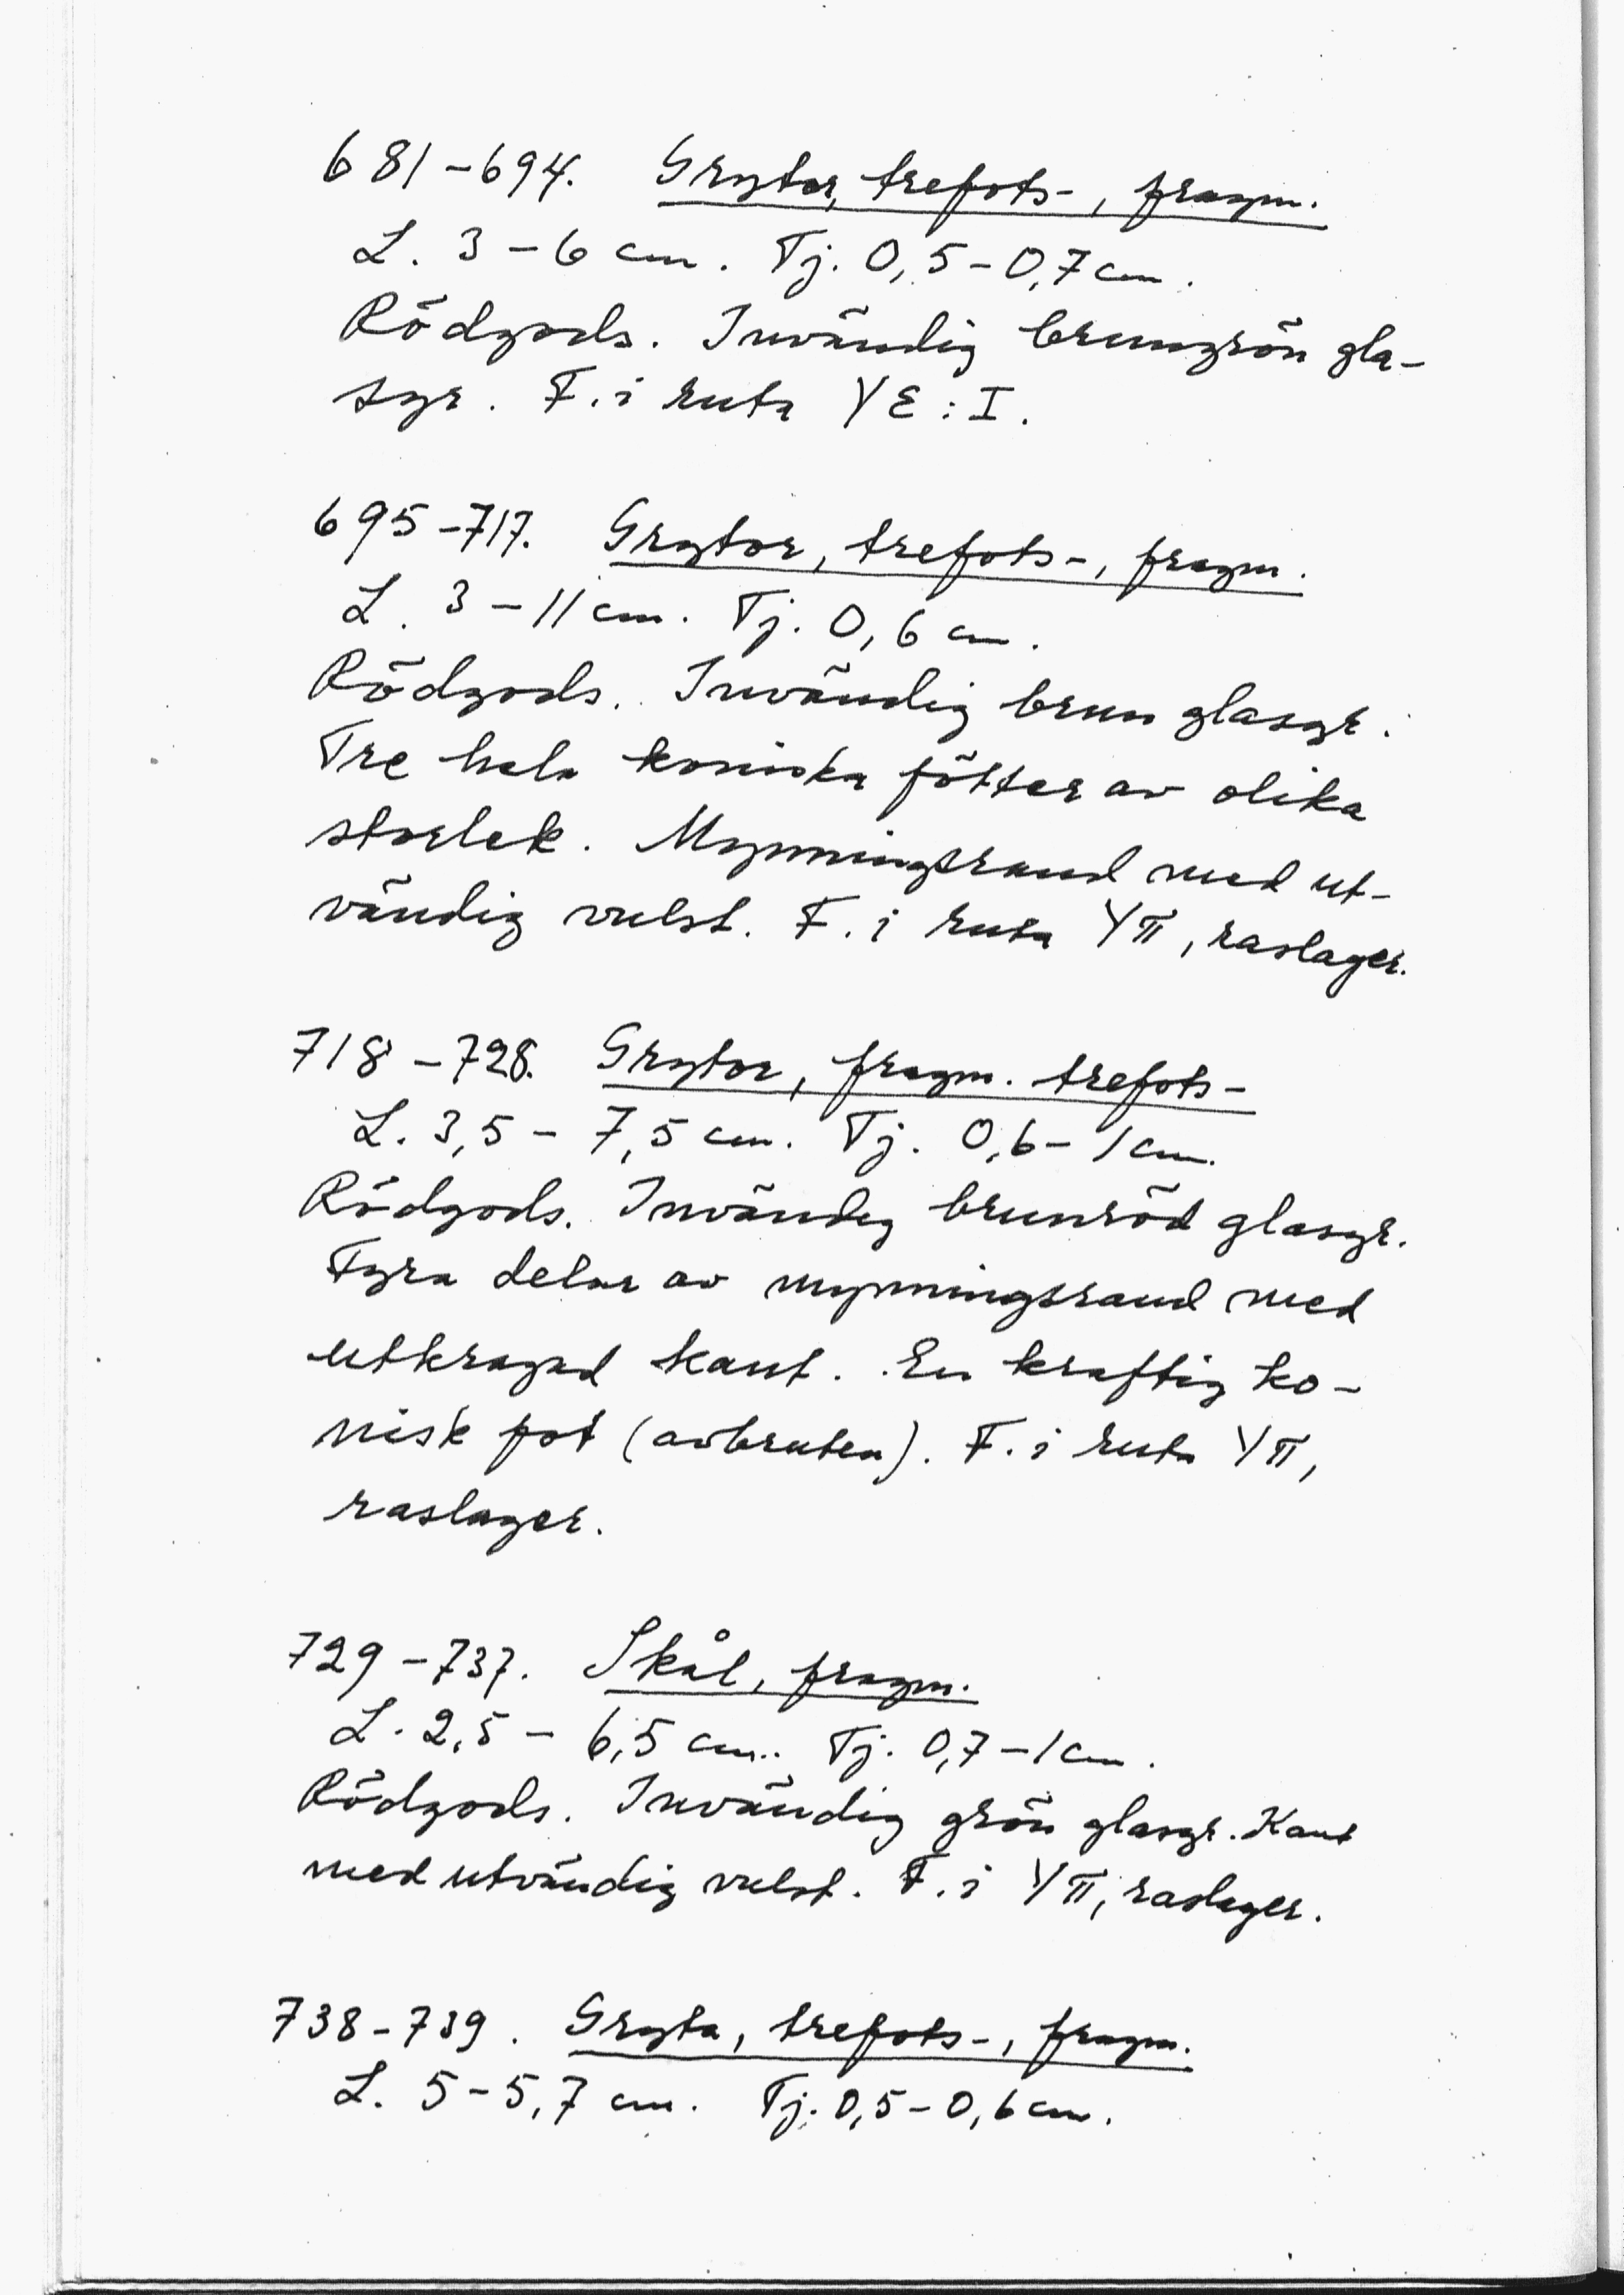 681-694. Grytor, trefots-, fragm.
L. 3-6 cm. Tj. 0,5-0,7 cm.
Rödgods. Invändig brungrön gla-
syr. F. i ruta YE:I.
695-717. Grytor, trefots-, fragm.
L. 3-11 cm. Tj. 0,6 cm.
Rödgods. Invändig brun glasyr.
Tre hela koniska fötter av olika
storlek. Mynningsrand med ut-
vändig vulst. F. i ruta YΠ, raslager.
718-728. Grytor, fragm. trefots-
L. 3,5-7,5 cm. Tj. 0,6-1 cm.
Rödgods. Invändig brunröd glasyr.
Fyra delar av mynningsrand med
utkragad kant. En kraftig ko-
nisk fot (avbruten). F. i ruta YΠ,
raslager.
729-737. Skål, fragm.
L. 2,5-6,5 cm. Tj. 0,7-1 cm.
Rödgods. Invändig grön glasyr. Kant
med utvändig vulst. F. i YΠ, raslager.
738-739. Gryta, trefots-, fragm.
L. 5-5,7 cm. Tj. 0,5-0,6 cm.